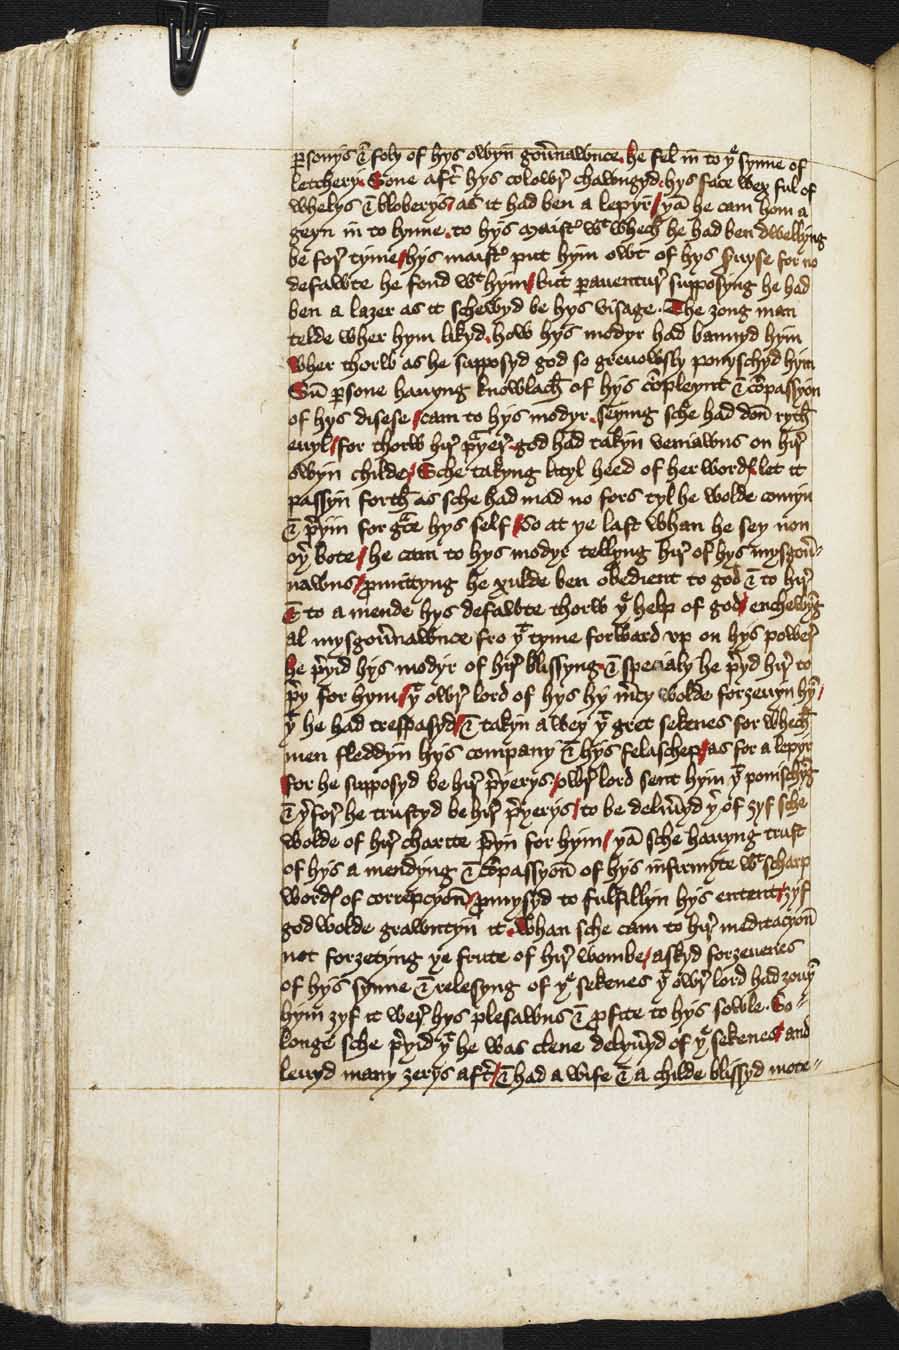 ꝑsonys & foly of hys owyn gou̅nawnce. he fel in to yͤ synne of
letchery. Sone aft̛ hys colowr̛ chawngyd. hys face wex ful of
whelys & bloberys / as it had ben a lepyr̛ / yā he cam hom a
geyn in to lynne. to hys maistr̛ wᵗ whech̅ he had ben dwellyng
be for̛ tyme / hys maistr̛ put hym owt of hys s̛uyse for no
defawte he fond wᵗ hym / but ꝑauentur̛ supposyng he had
ben a lazer as it schewyd be hys visage. The ȝong man
telde wher hym likyd. how hys modyr had bannyd hym
Wher thorw as he supposyd god so greuowsly ponyschyd hym
Su̅ ꝑsone hauyng knowlach̅ of hys co̅pleynt & co̅passyon
of hys disese / cam to hys modyr. seying sche had don̅ ryth̅
euyl / for thorw hir̛ pᵃyer̛. god had takyn veniawns on hir̛
owyn childe / Sche takyng lityl heed of her wordꝭ let it
passyn forth̅ as sche had mad no fors tyl he wolde comyn
& p̛yin for gᵃce hys self / So at ye last whan he sey non
oyͬ bote / he cam to hys modyr tellyng hir̛ of hys mysgou̅-
nawns / ꝓmittyng he xulde ben obedient to god & to hir̛
& to a mende hys defawte thorw yͤ help of god / enchewyn̅g
al mysgou̅nawnce fro yᵗ tyme forward vp on hys power̛
he p̛yid hys modyr of hir̛ blissyng. & specialy he p̛yd hir̛ to
p̛y for hym / yᵗ owr̛ lord of hys hy m̛cy wolde forȝeuyn hy̅ /
yᵗ he had trespasyd / & takyn a wey yᵗ gret sekenes for whech̅
men fleddyn hys company & hys felaschep / as for a lepyr
for he supposyd be hir̛ p̛yerys / owr̛ lord sent hym yᵗ ponischy̅g
& y̛for̛ he trustyd be hir̛ p̛yerys / to be delyu̅yd y̛ of ȝyf sche
wolde of hir̛ charite p̛yn for hym / yā sche hauyng trust
of hys a mendyng & co̅passyon̅ of hys infirmyte wᵗ scharp
wordꝭ of correpcyon̅ / ꝓmysyd to fulfillyn hys entent / ȝyf
god wolde grawntyn it. Whan sche cam to hir̛ meditacyon̅
not forȝetyng ye frute of hir̛ wombe / askyd forȝeuenes
of hys synne & relesyng of yͤ sekenes yᵗ owr̛ lord had ȝouy̅
hym ȝyf it wer̛ hys plesawns & ꝓfite to hys sowle. So-
longe sche p̛yid yᵗ he was clene delyu̅yd of yͤ sekenes / and
leuyd many ȝerys aft̛ / & had a wife & a childe blissyd mote-